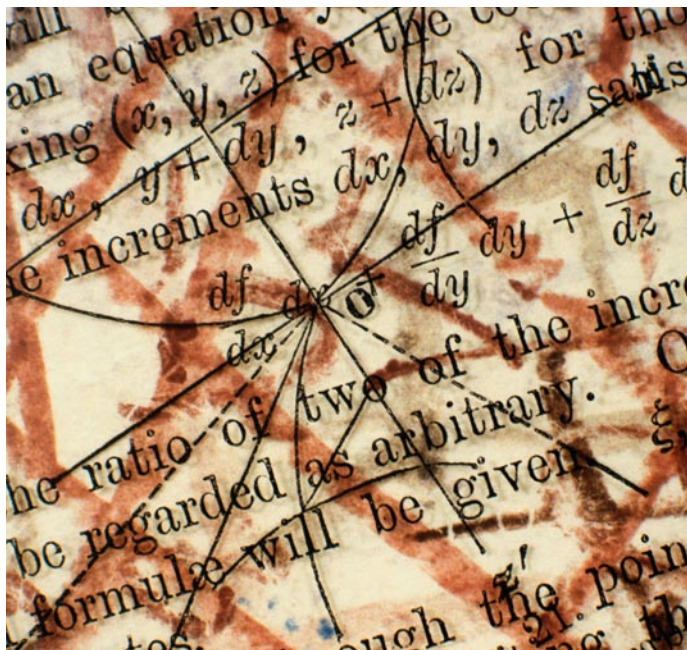 will b
an equation f( for the co
king (x, y, z) for tho
dx, y + dy, z + dz)
e increments dx, dy, dz satis
df/dx dx + df/dy dy + df/dz d
O
he ratio of two of the incre
be regarded as arbitrary. O
formulæ will be given ξ,
z'
tes, ough the poin
21.
ting th